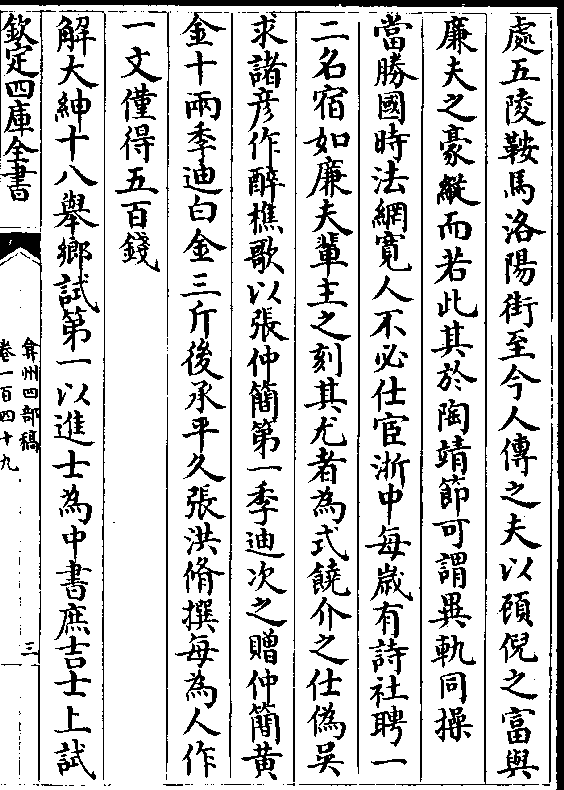 處五陵鞍馬洛陽街至今人傳之夫以顧倪之富與
廉夫之豪縱而若此其於陶靖節可謂異軌同操
當勝國時法網寛人不必仕宦浙中每歲有詩社聘一
二名宿如廉夫輩主之刻其尤者為式饒介之仕偽吳
求諸彦作醉樵歌以張仲簡第一季迪次之贈仲簡黄
金十兩季迪白金三斤後承平久張洪脩撰每為人作
一文僅得五百錢
解大紳十八舉鄉試第一以進士為中書庶吉士上試
欽定四庫全書
弇州四部稿
卷一百四十九
三